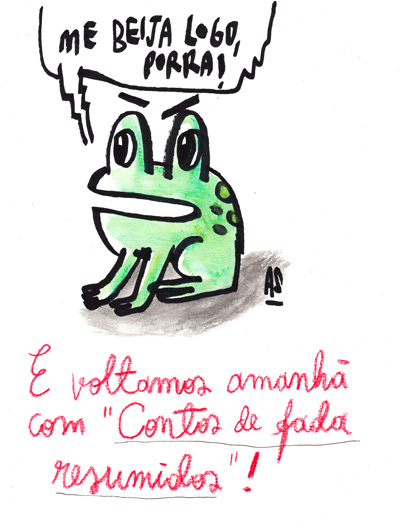 ME BEIJA LOGO,
PORRA!
AS
E voltamos amanhã
com "Contos de fada
resumidos"!